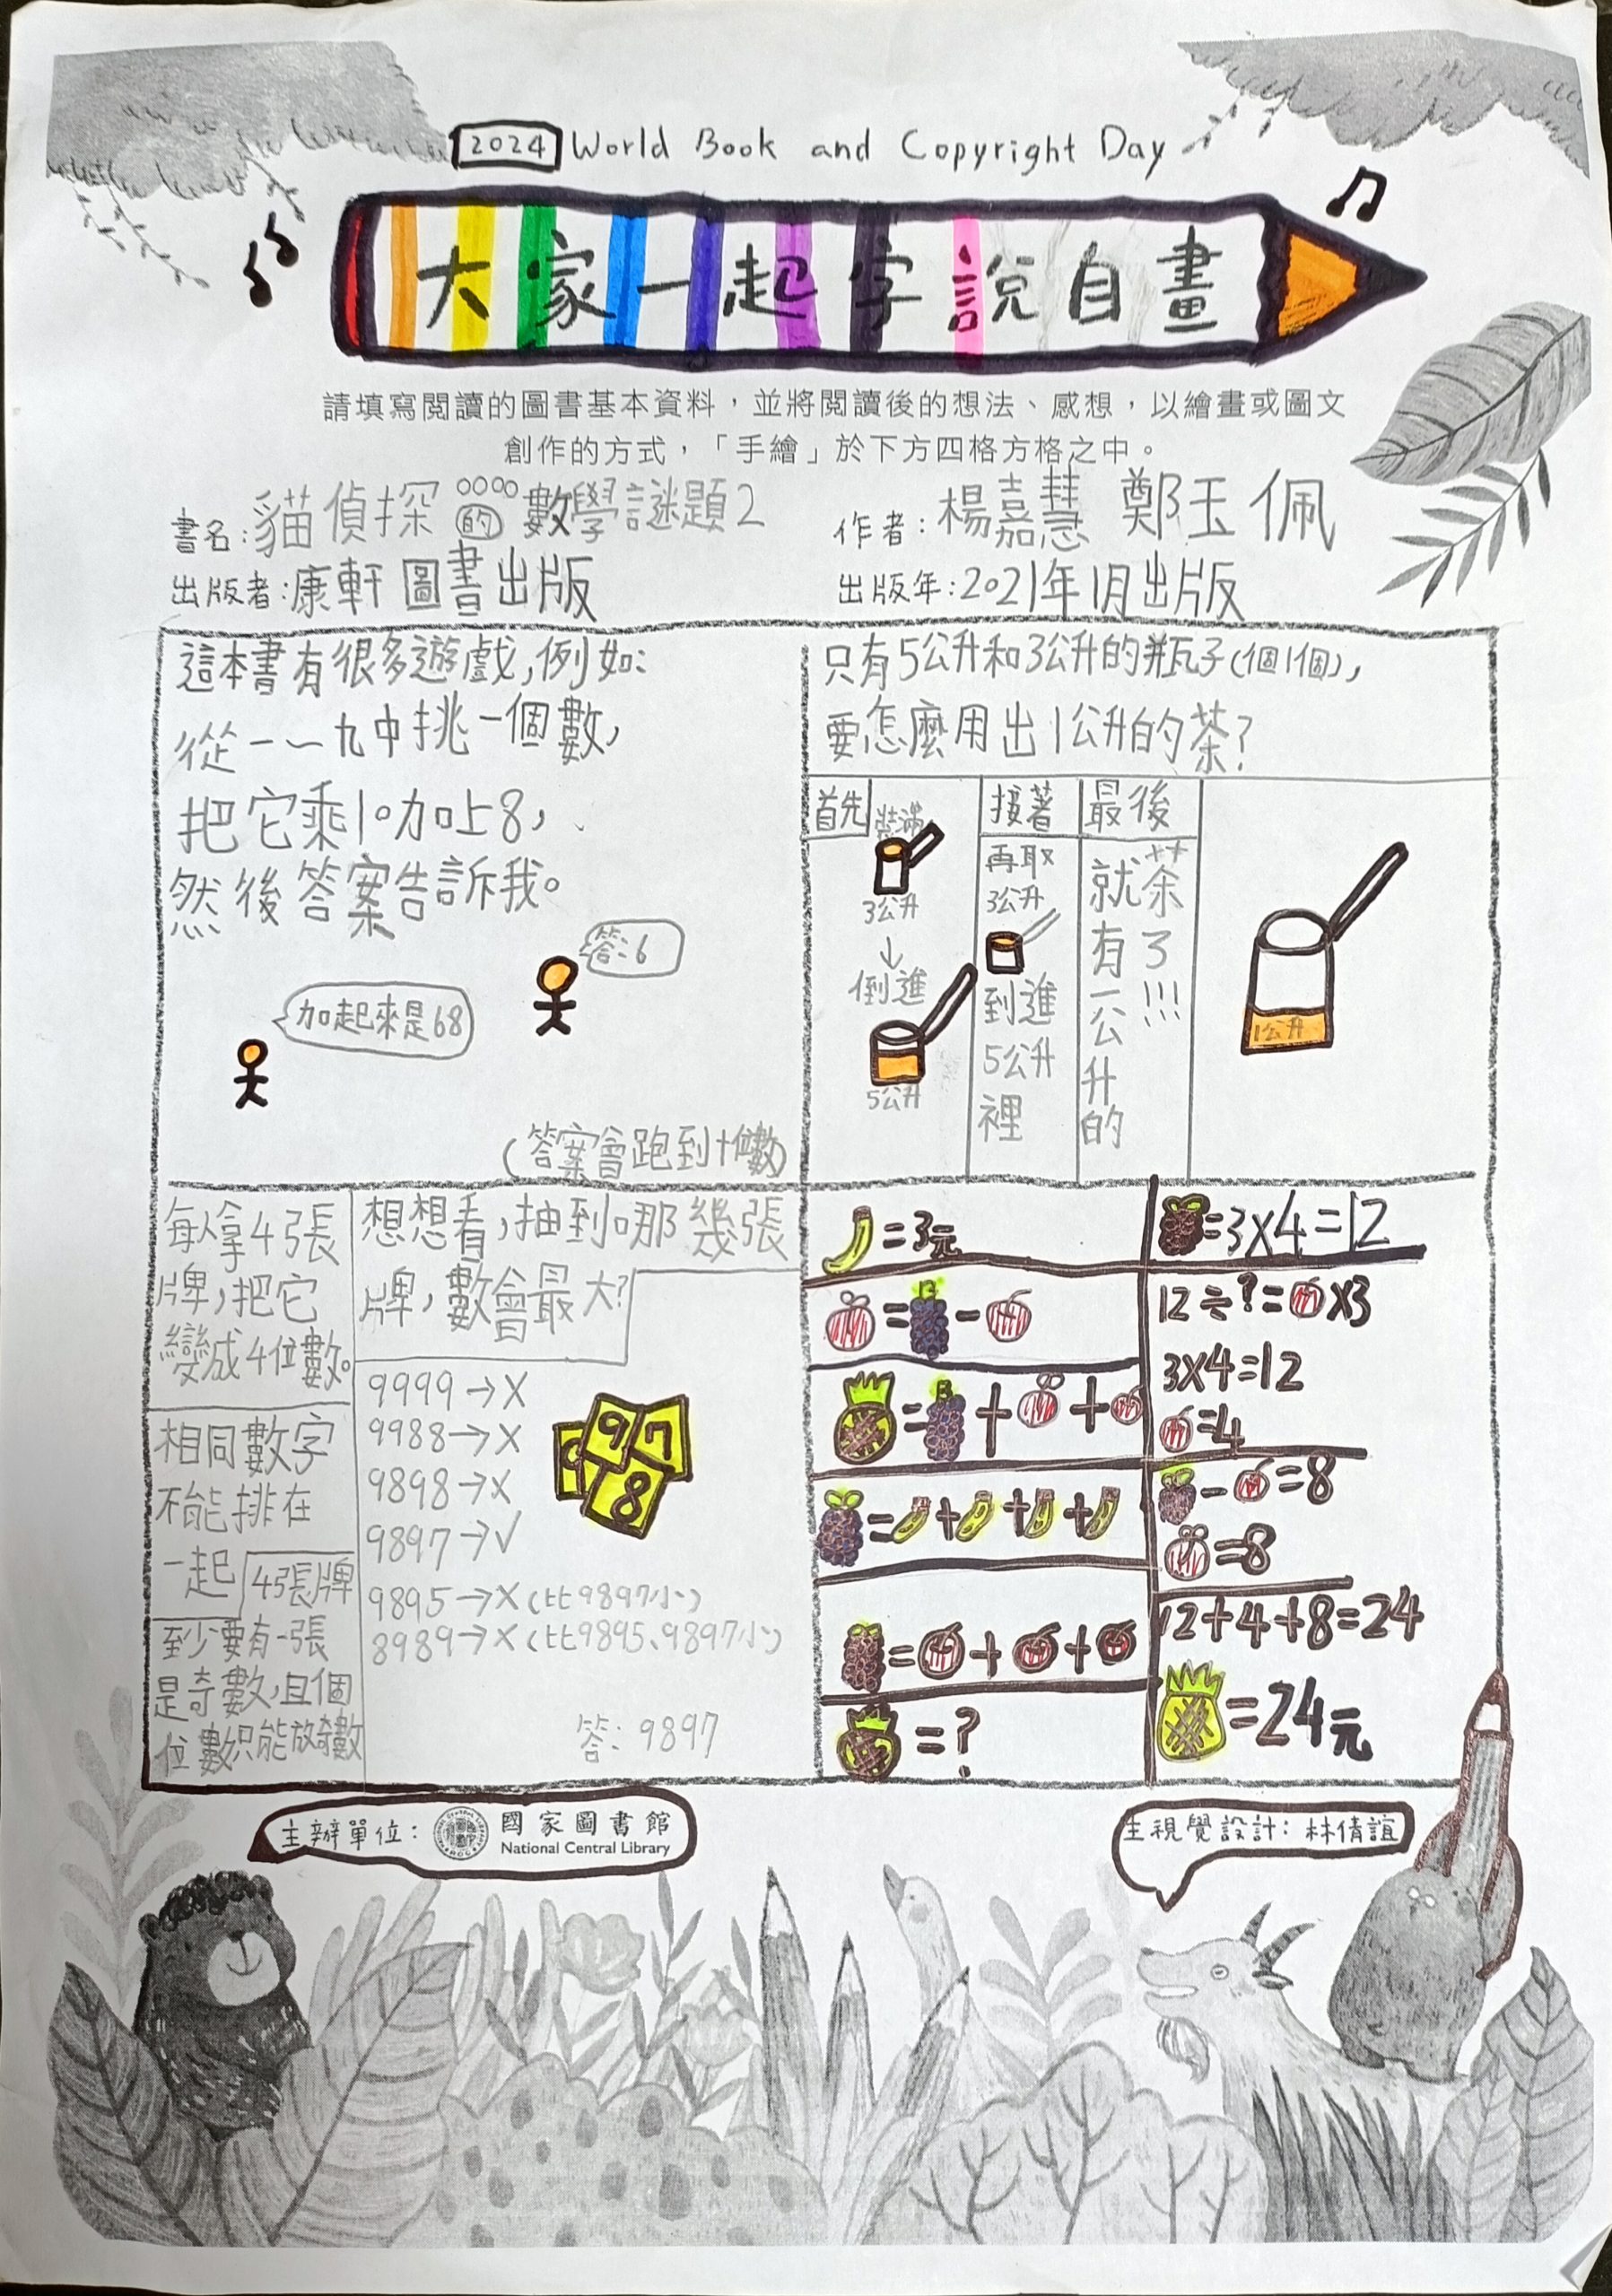 2024 World Book and Copyright Day
大家一起字說自畫
請填寫閱讀的圖書基本資料，並將閱讀後的想法、感想，以繪畫或圖文
創作的方式，「手繪」於下方四格方格之中。
書名：貓偵探的數學謎題2
作者：楊嘉慧 鄭玉佩
出版者：康軒圖書出版
出版年：2021年1月出版
這本書有很多遊戲，例如：
從一～九中挑一個數，
把它乘10加上8，
然後答案告訴我。
答：6
加起來是68
（答案會跑到十位數）
只有5公升和3公升的瓶子(個1個)，
要怎麼用出1公升的茶？
首先
裝滿
3公升
↓
倒進
5公升
接著
再取
3公升
到進
5公升
裡
最後
就有一公升的
茶了!!!
1公升
每人拿4張
牌，把它
變成4位數。
相同數字
不能排在
一起
4張牌
至少要有一張
是奇數，且個
位數只能放奇數
想想看，抽到哪幾張
牌，數會最大？
9999→X
9988→X
9898→X
9897→√
9895→X（比9897小）
8989→X（比9895、9897小）
9 7
8
答：9897
=3元
= -
= + +
= + + +
= + +
=?
=3X4=12
12÷?= X3
3X4=12
=4
- =8
=8
12+4+8=24
=24元
主辦單位：國家圖書館
National Central Library
主視覺設計：林倩誼